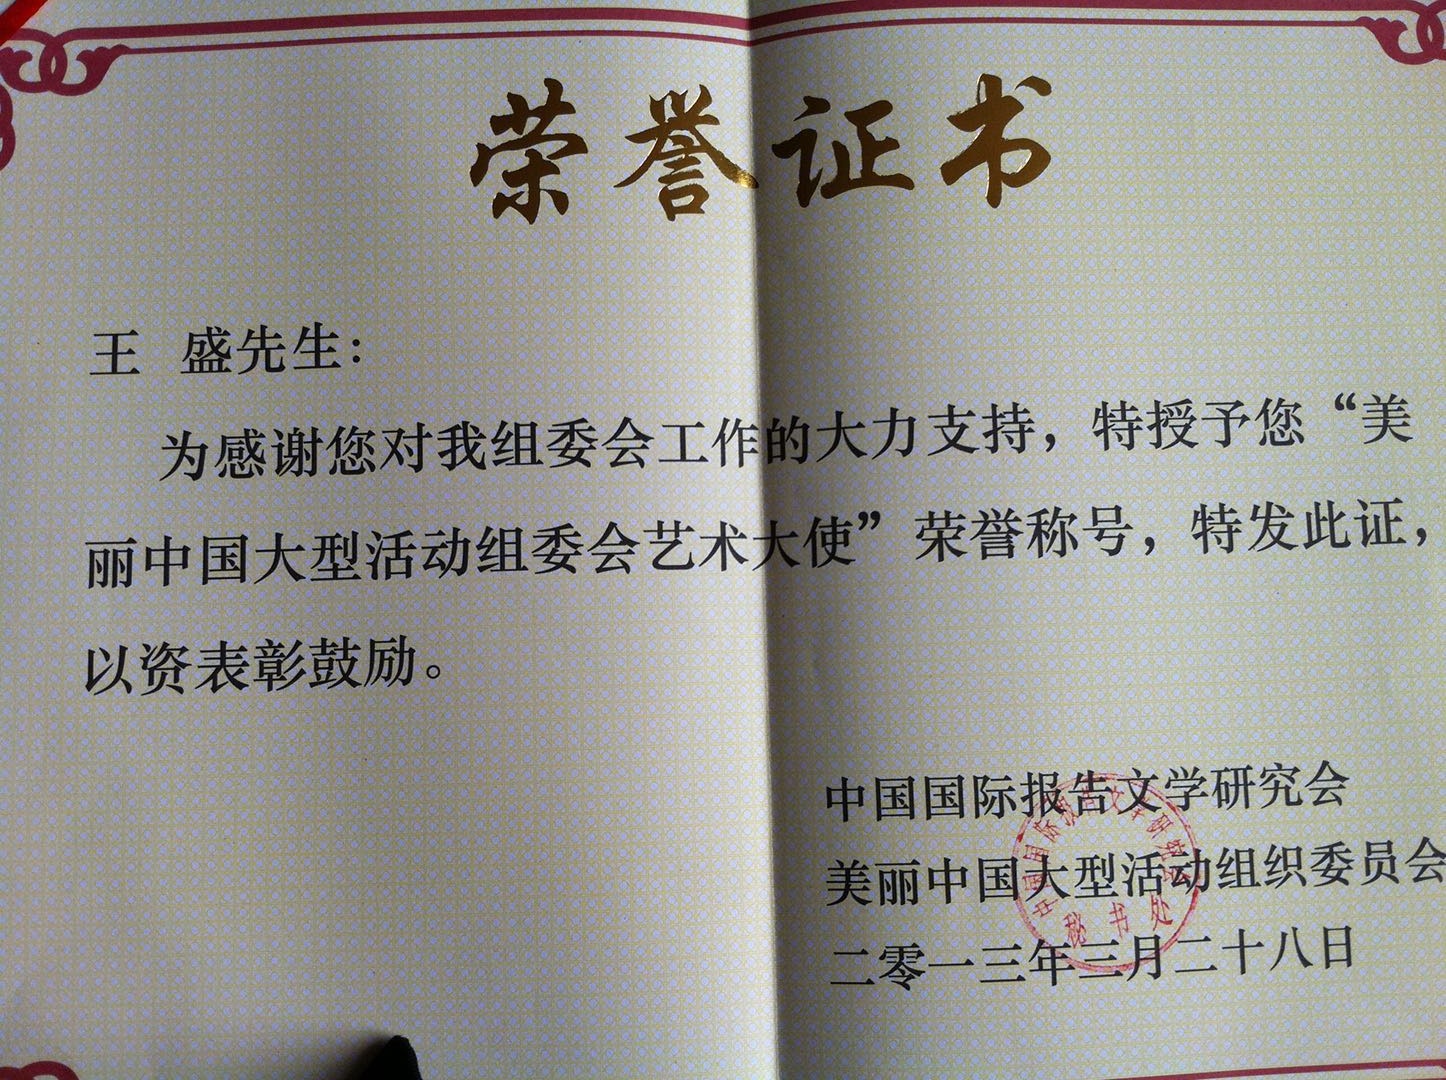 荣誉证书
王 盛先生：
为感谢您对我组委会工作的大力支持，特授予您“美
丽中国大型活动组委会艺术大使”荣誉称号，特发此证，
以资表彰鼓励。
中国国际报告文学研究会
美丽中国大型活动组织委员会
二零一三年三月二十八日
中国国际报告文学研究会
秘书处